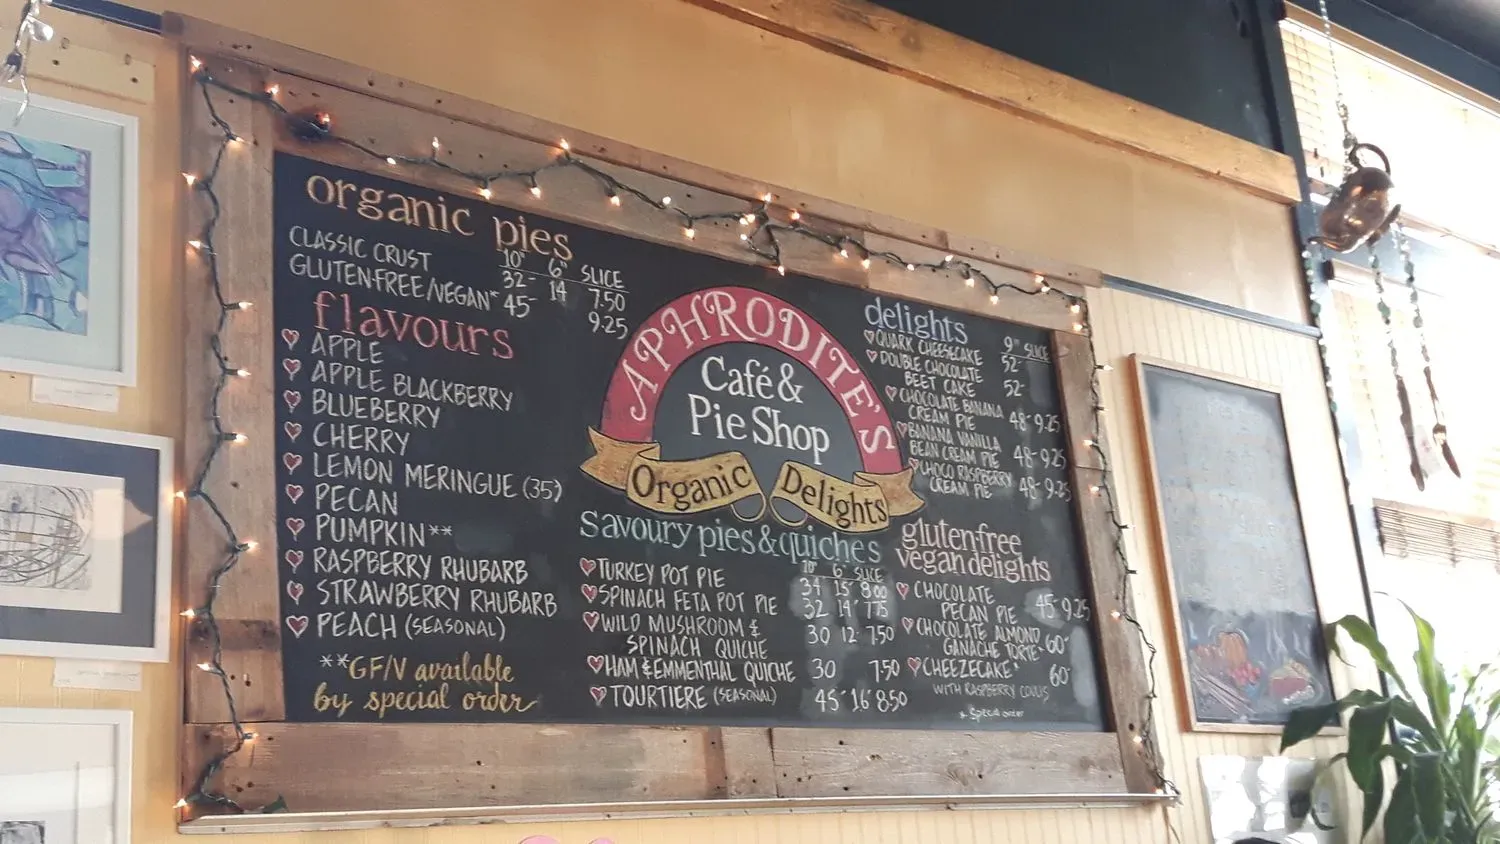 organic pies
10" 6" SLICE
CLASSIC CRUST 32- 14 7.50
GLUTEN-FREE/VEGAN* 45- 9.25
flavours
APPLE
APPLE BLACKBERRY
BLUEBERRY
CHERRY
LEMON MERINGUE (35)
PECAN
PUMPKIN**
RASPBERRY RHUBARB
STRAWBERRY RHUBARB
PEACH (SEASONAL)
**GF/V available
by special order
APHRODITE'S
Café &
Pie Shop
Organic Delights
savoury pies & quiches
10" 6" SLICE
TURKEY POT PIE 34 15- 8.00
SPINACH FETA POT PIE 32 14- 7.75
WILD MUSHROOM &
SPINACH QUICHE 30 12- 7.50
HAM & EMMENTHAL QUICHE 30 7.50
TOURTIERE (SEASONAL) 45- 16- 8.50
delights
9" SLICE
QUARK CHEESECAKE 52-
DOUBLE CHOCOLATE
BEET CAKE 52-
CHOCOLATE BANANA
CREAM PIE 48- 9.25
BANANA VANILLA
BEAN CREAM PIE 48- 9.25
CHOCO RASPBERRY
CREAM PIE 48- 9.25
gluten free
vegan delights
CHOCOLATE
PECAN PIE 45- 9.25
CHOCOLATE ALMOND
GANACHE TORTE* 60-
CHEEZECAKE* 60-
WITH RASPBERRY COULIS
* Special order